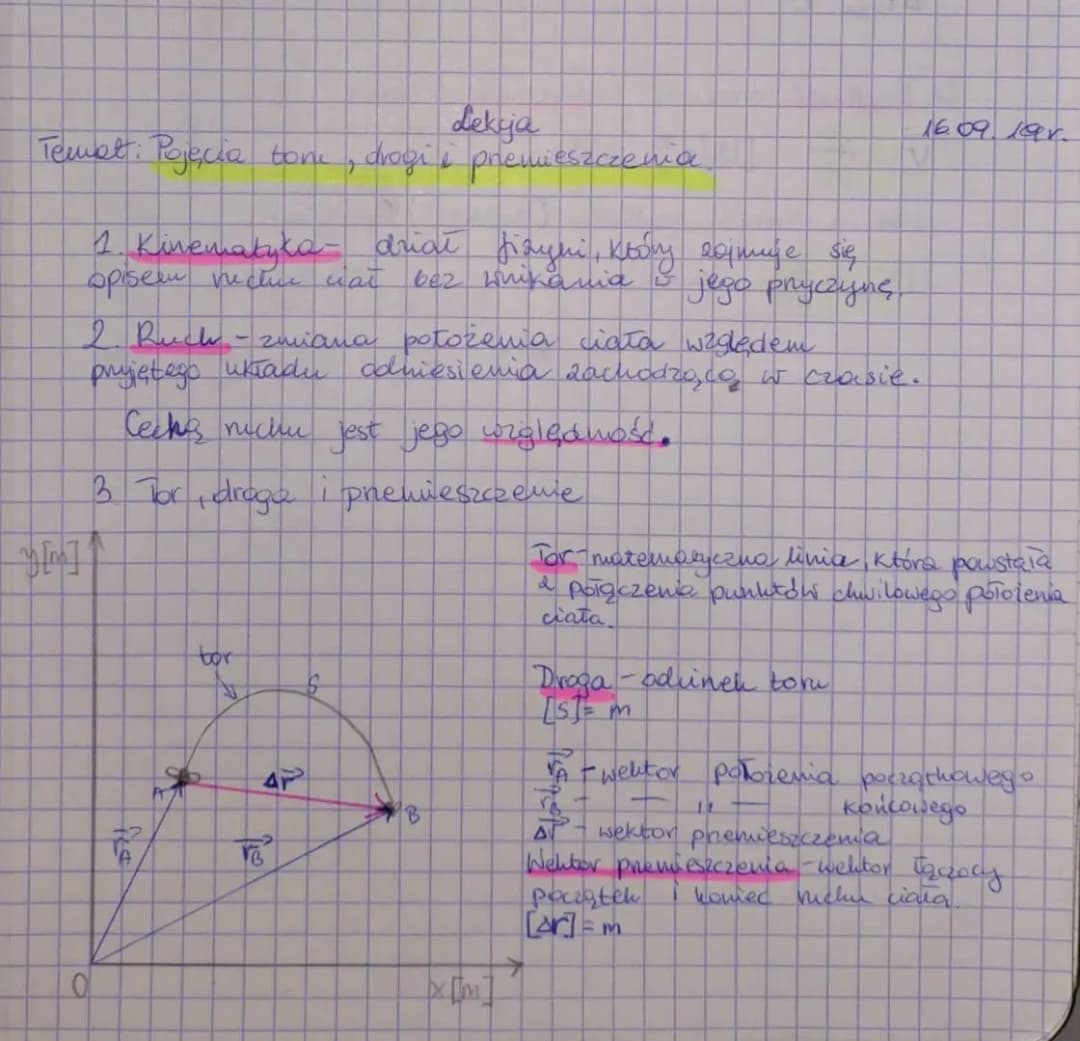 Lekcja
16.09.19r.
Temat: Pojęcia toru, drogi i przemieszczenia.
1. Kinematyka - dział fizyki, który zajmuje się
opisem ruchu ciał bez wnikania w jego przyczynę.
2. Ruch - zmiana położenia ciała względem
przyjętego układu odniesienia zachodzącą w czasie.
Cechą ruchu jest jego względność.
3 Tor, droga i przemieszczenie
y[m]
tor
S
A
Δr
B
rA
rB
0
x[m]
Tor - matematyczna linia, która powstała
z połączenia punktów chwilowego położenia
ciała.
Droga - odcinek toru
[S] = m
rA - wektor położenia początkowego
rB - — " — końcowego
Δr - wektor przemieszczenia
Wektor przemieszczenia - wektor łączący
początek i koniec ruchu ciała.
[Δr] = m